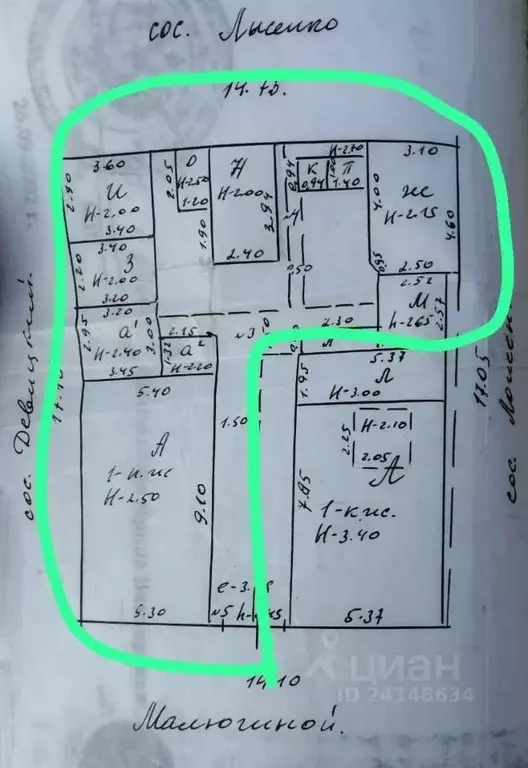 сос. Лысенко
14.75.
3.60
2.90
И
Н-2.00
3.40
3.40
2.20
З
Н-2.00
3.20
3.20
2.95
а'
3.00
Н-2.40
3.45
2.05
Н-2.50
1.20
1.90
Н
Н-2.00
3.94
2.40
Н-2.70
0.94
К
П
0.94
1.40
3.10
4.00
ж
Н-2.15
4.60
0.95
2.50
2.52
М
h-265
2.57
2.30
2.25
1.32
а²
Н-2.20
5.40
1.50
А
1-к.ж
Н-2.50
9.10
5.30
Л
5.37
Л
1.95
Н-3.00
2.25
Н-2.10
2.05
Л
7.95
1-к.ж.
Н-3.40
5.37
сос. Девицкий.
17.05
14.10
Малюгиной.
циан
ID 24148634